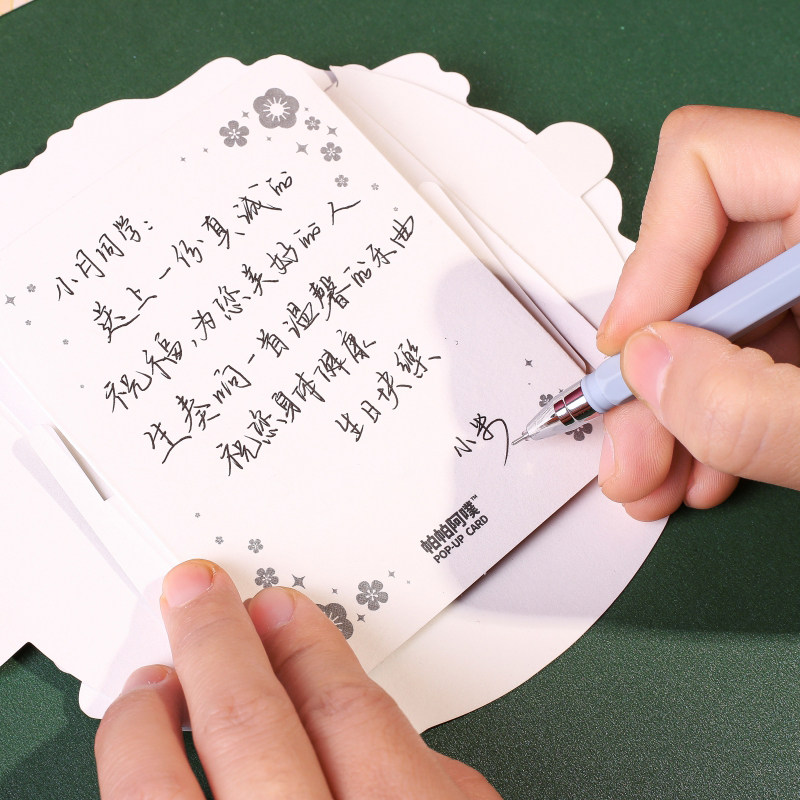 小月同学:
送上一份真诚的
祝福,为您美好的人
生奏响一首温馨的乐曲
祝您身体健康
生日快樂
小米
帕帕阿噗™
POP-UP CARD